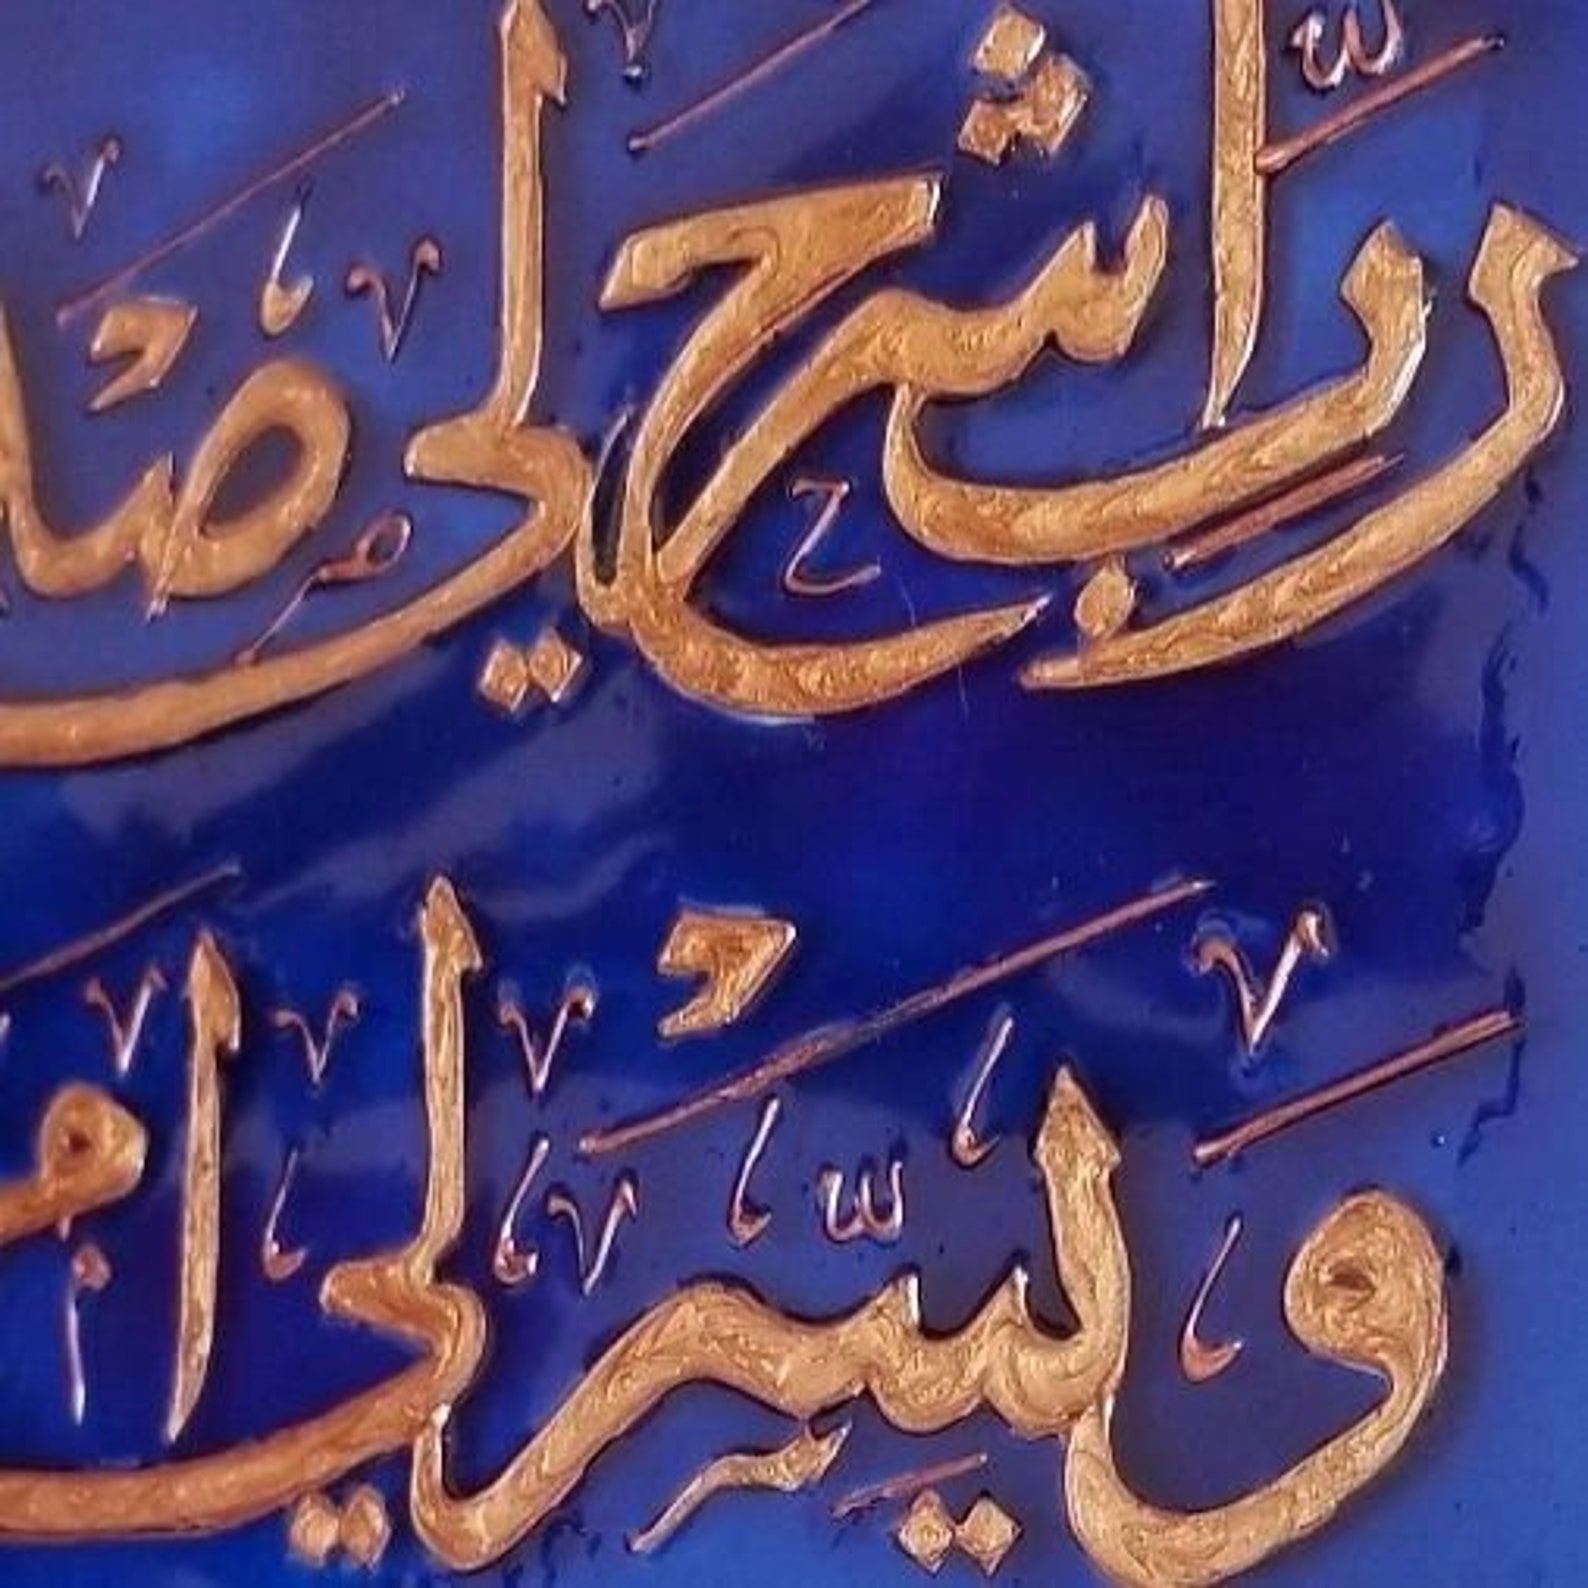 رب اشرح لي ص
ويسر لي ا